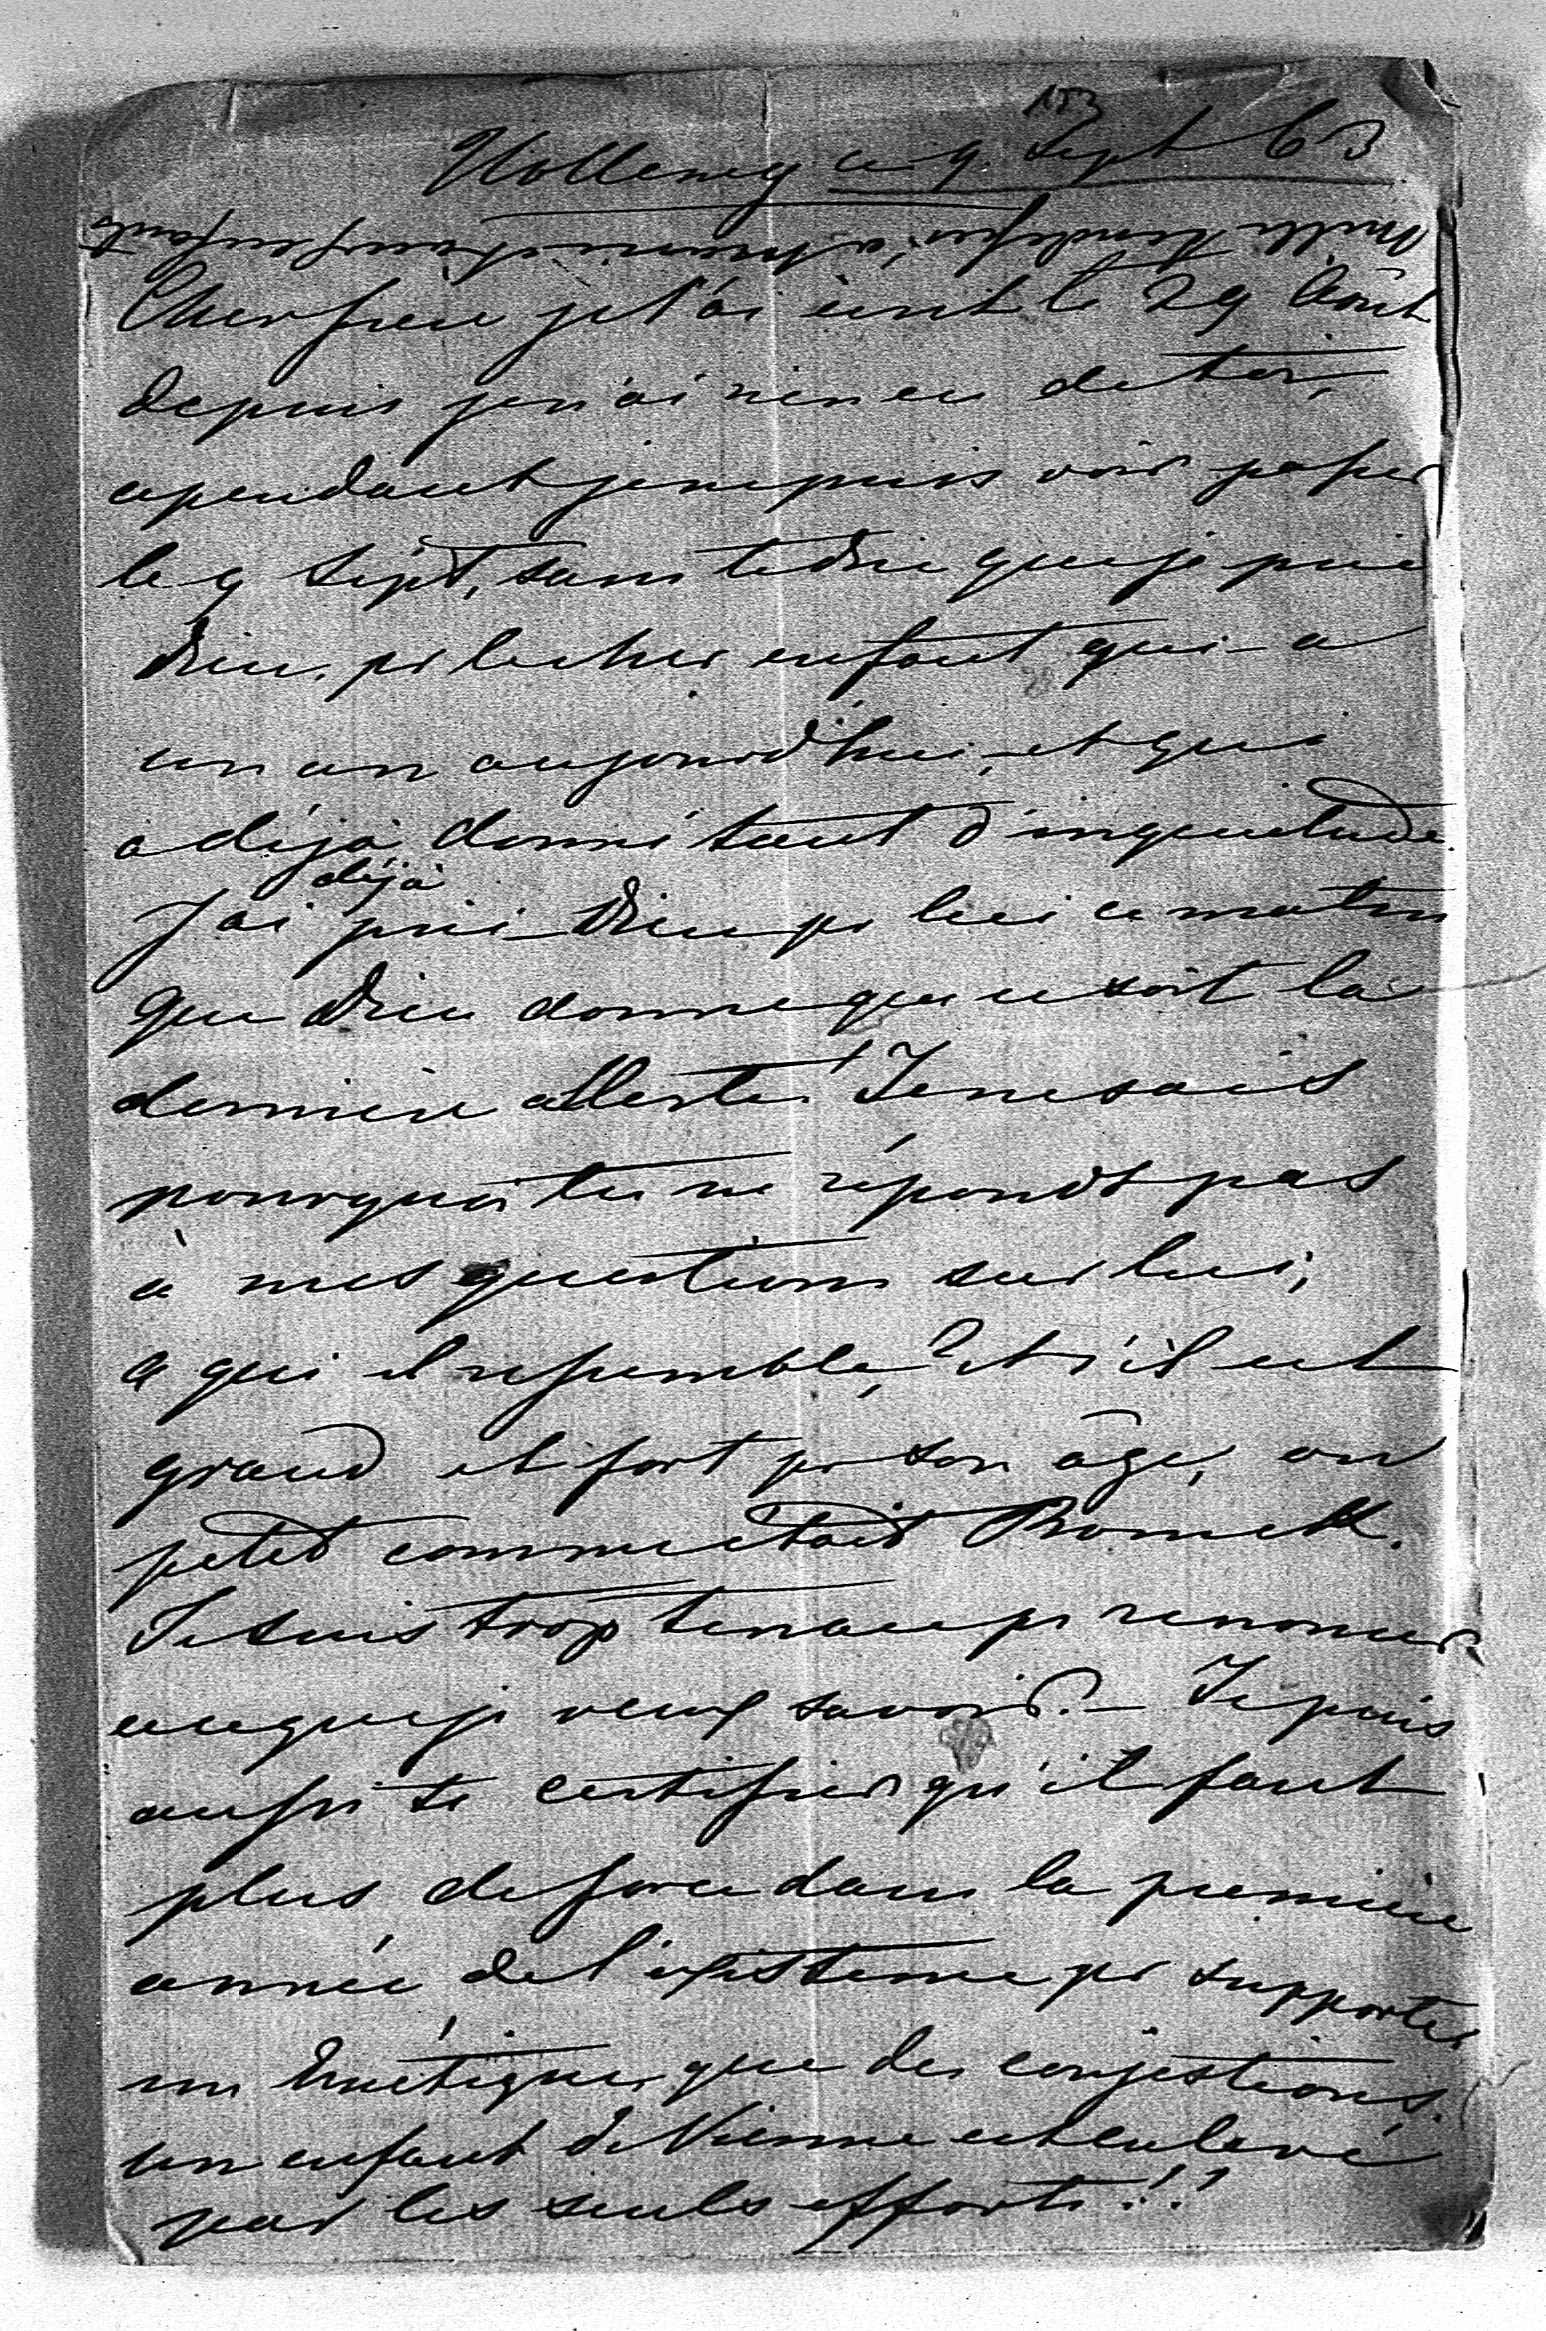 153
ce 9. Sept 63
Cher frère je t'ai écrit le 29 Août
depuis je n'ai rien eu de toi,
cependant je ne puis voir passer
le 9 Sept, sans te dire que je prie
Dieu pr le cher enfant qui a
un an aujourd'hui, et qui
a déjà donné tant d'inquietude.
J'ai déjà prié Dieu pr lui ce matin
que Dieu donne que ce soit la
dernière allerte! Je ne sais
pourquoi tu ne réponds pas
à mes questions sur lui,
a qui il ressemble, ? et s'il est
grand et fort pr son âge, ou
petit comme était
Je suis trop tenace pr renoncer
a ce que je veux savoir. – Je puis
aussi te certifier qu'il faut
plus de force dans la première
année de l'existence pr supporter
un Emétique, que des conjestions.
un enfant de Vienne est enlevé
par les seuls efforts!!